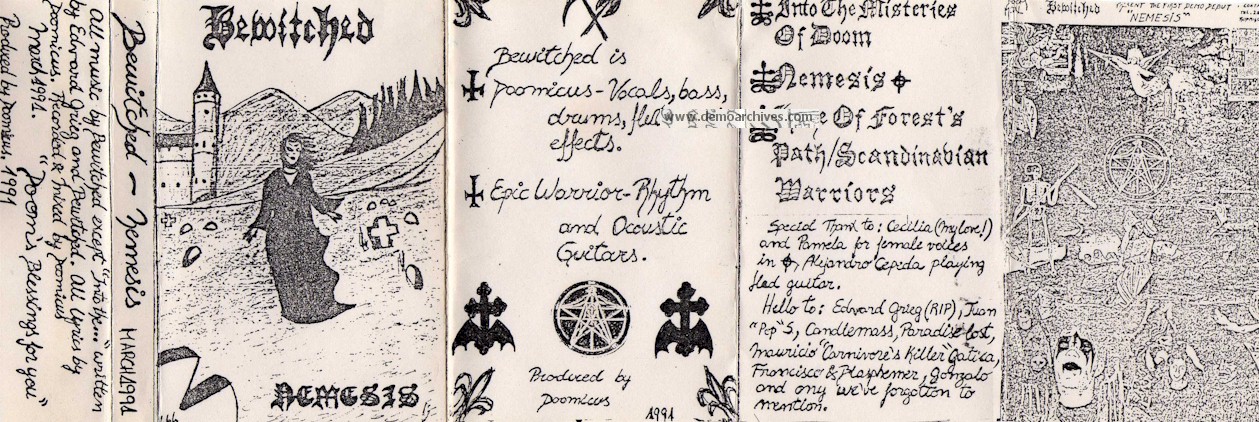 All music by Bewitched except "Into the.." written
by Edward Grieg and Bewitched. All Lyrics by
Doomicus. Recorded & Mixed by Doomicus
March 1991. "Doom's Blessings for you"
Produced by Doomicus, 1991
Bewitched ~ Nemesis MARCH 1991
Bewitched
NEMESIS
Bewitched is
Doomicus - Vocals, bass,
drums,
effects.
Epic Warrior - Rhythm
and Acoustic
Guitars.
Produced by
Doomicus
1991
www.demoarchives.com
Into The Misteries
Of Doom
Nemesis
Of Forest's
Path/Scandinavian
Warriors
Special Thank to: Cecilia (my love!)
and Pamela for female voices
in , Alejandro Cepeda playing
fled guitar.
Hello to: Edvard Grieg (RIP), Juan
"Pop" S, Candlemass, Paradise Lost,
Mauricio "Carnivore's Killer" Gatica,
Francisco & Blasphemer, Gonzalo
and any we've forgotion to
mention.
Bewitched PRESENT THE FIRST DEMO DEBUT
"NEMESIS"